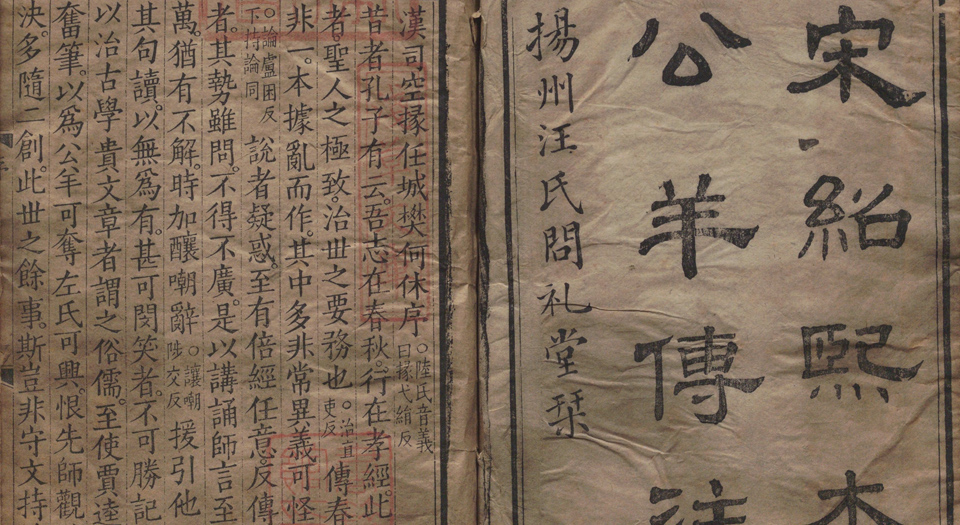 宋紹熙本
公羊傳注
揚州汪氏問礼堂栞
漢司空掾任城樊何休序○陸氏音義曰掾弋絹反
昔者孔子有云。吾志在春秋。行在孝經。此
者。聖人之極致。治世之要務也。○治直吏反傳春
非一。本據亂而作。其中多非常異義可怪
○論盧困反下持論同說者疑惑。至有倍經任意。反傳
者。其勢雖問。不得不廣。是以講誦師言至
萬。猶有不解。時加釀嘲辭○讓嘲陟交反援引他
其句讀。以無爲有。甚可閔笑者。不可勝記
以治古學貴文章者謂之俗儒。至使賈逵
奮筆。以爲公羊可奪左氏可興。恨先師觀
決。多隨二創。此世之餘事。斯豈非守文持